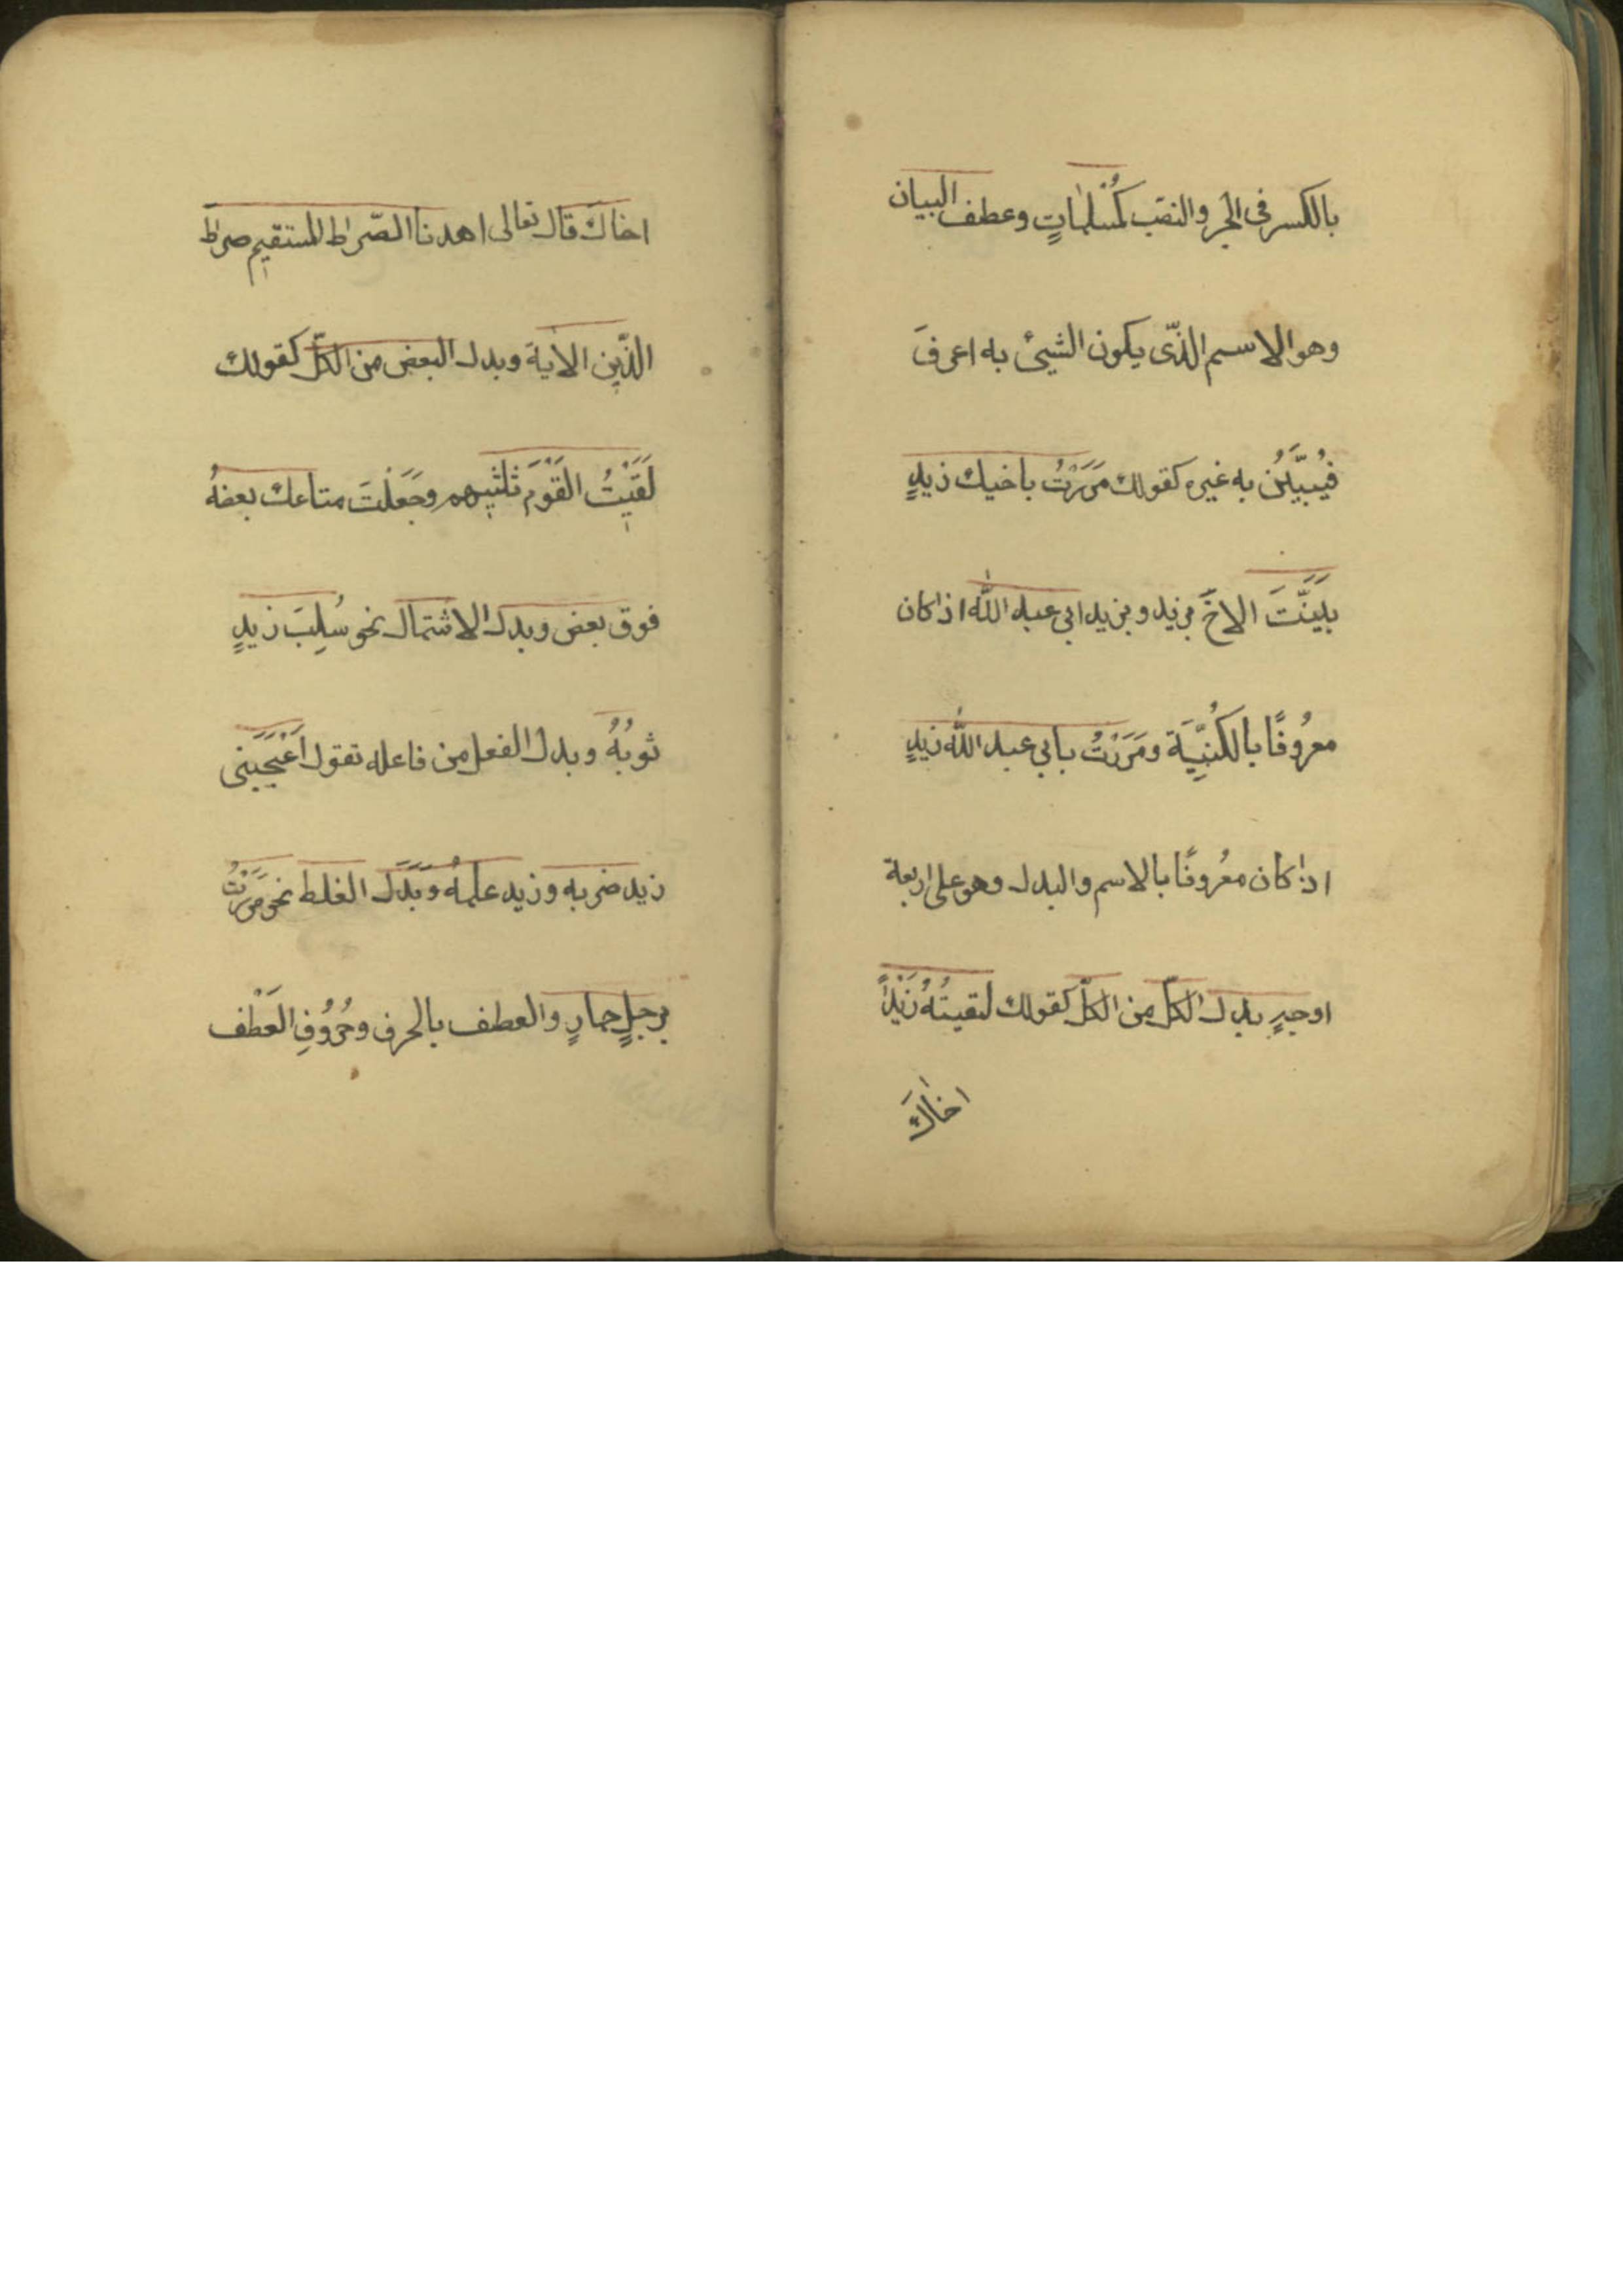 بالكسر فى الجر والنصب كمُسْلمَاتٍ وعطف البيان
وهو الاسم الذّى يكون الشيئ به اعرفَ
فيُبيَّنُ به غيره كقولك مَرَرْتُ باخيك زيدٍ
بيَّنَّتَ الاخَ بزيد وبزيد ابى عبد الله اذا كان
معرُوفًا بالكُنِيَّة ومَرَرْتُ بابى عبد الله زيدٍ
اذا كان معُروفًا بالاسم والبدل وهو على اربعة
اوجهٍ بدل الكلّ من الكلّ كقولك لقيتُهُ زَيْدًا
اخاكَ
اخاكَ قال تعالى اهدنا الصّراط المستقيم صراط
الذّين الاية وبدل البعض من الكلّ كقولك
لَقَيْتُ القَوْمَ ثلثيهم وجَعَلْتَ متاعك بعضهُ
فوق بعض وبدل الاشتمال نحو سُلِبَ زيدٍ
ثوبُهُ وبدل الفعل من فاعله تقول اَعْجَبَنى
زيد ضربه وزيد علمهُ وبَدَل الغلط نحو مَرَرْتُ
برجلٍ حمارٍ والعطف بالحرف وحُرُوُفِ العَطْف